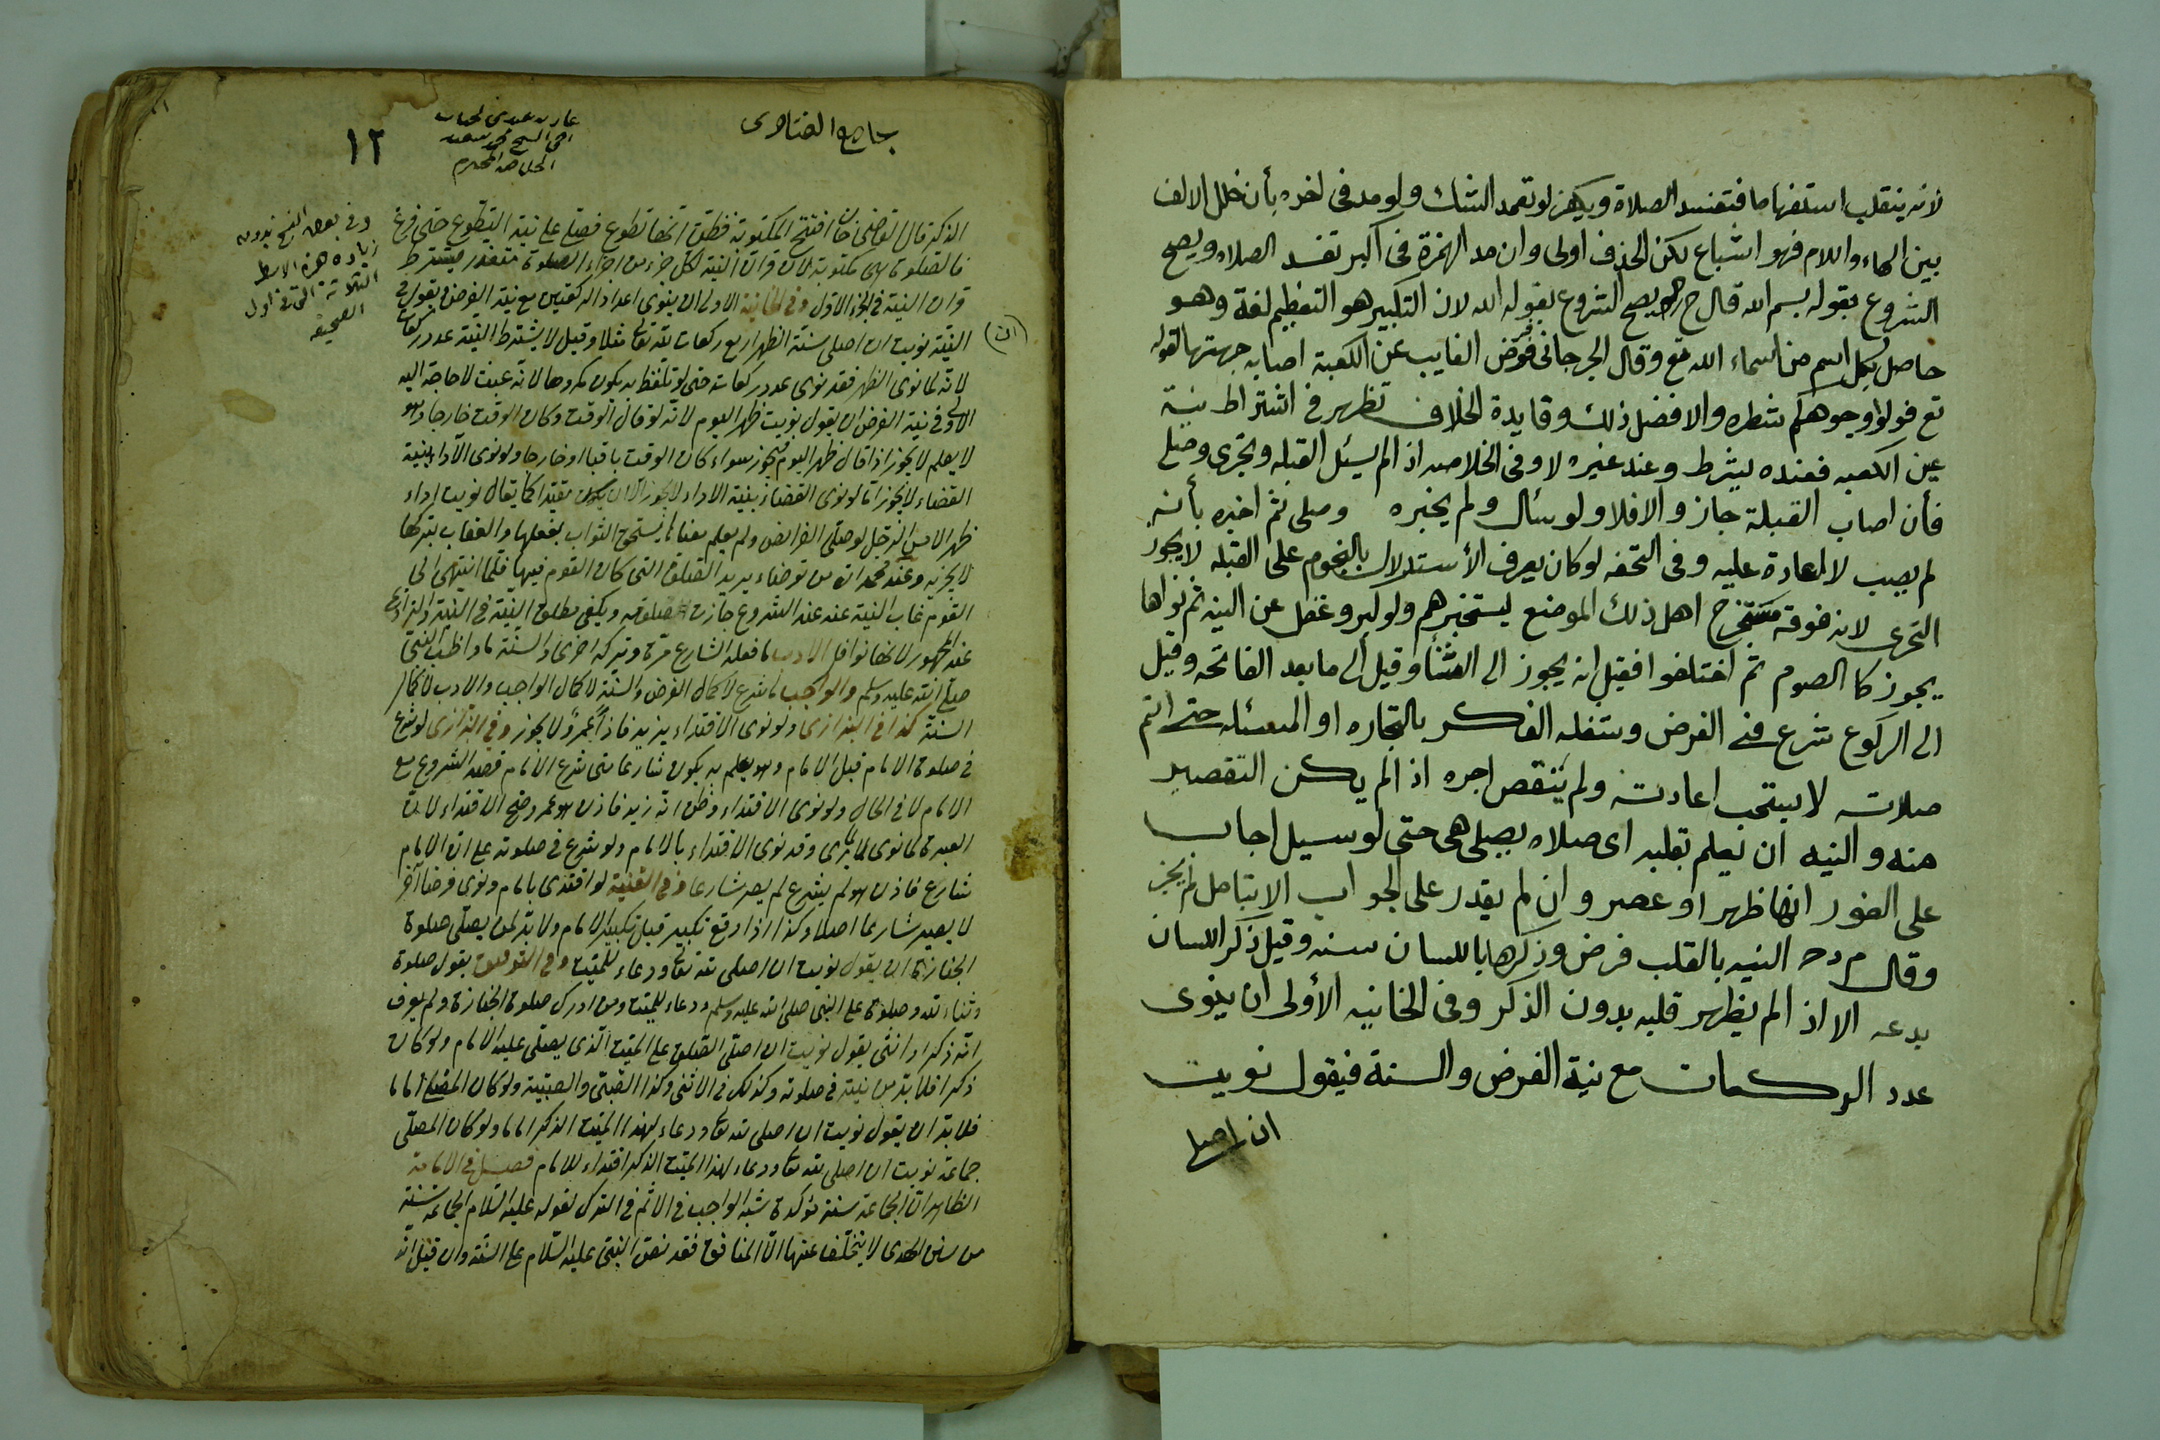 لانه ينقلب استفهاما فتفسد الصلاة ويكفر لو تعمد الشك ولو مد فى اخره بأن خلل الالف
بين الهاء واللام فهو اشباع لكن الحذف اولى وان مد الهمزة فى اكبر تفسد الصلاه ويصح
الشروع بقوله بسم الله قال ح يصح الشروع بقوله الله لان التكبير هو التعظيم لغة وهو
حاصل بكل اسم من اسماء الله تع وقال الجرجانى فرض الغايب عن الكعبة اصابه جهتها لقوله
تع فولوا وجوهكم شطره والافضل ذلك وفايدة الخلاف تظهر فى اشتراط نية
عين الكعبه فعنده يشرط وعند غيره لا وفى الخلاصه اذ الم يسئل القبله وتحرى وصلى
فأن اصاب القبلة جاز والافلا ولو سئال ولم يخبره وصلى ثم اخبره بأنه
لم يصب لا اعادة عليه وفى التحفه لو كان يعرف الأستدلال بالنجوم على القبله لايجوز
التحرى لانه فوقه اهل ذلك الموضع ليستخبرهم ولو كبر وغفل عن النيه ثم نواها
يجوز كا الصوم ثم اختلفوا فقيل انه يجوز الى الثنا وقيل الى ما بعد الفاتحه وقيل
الى الركوع شرع فى الفرض وشغله الفكر بالتجاره او المسئله حتى اتم
صلاته لا يستحب اعادته ولم ينقص اجره اذ الم يكن التقصير
منه والنيه ان يعلم بقلبه اى صلاه يصلى هى حتى لو سيل اجاب
على الفور انها ظهر او عصر وان لم يقدر على الجواب الا بتامل لم يجز
وقال م رح النيه بالقلب فرض وذكرها باللسان سنه وقيل ذكر اللسان
بدعه الا اذ الم يظهر قلبه بدون الذكر وفى الخانيه الأولى ان ينوى
عدد الركعات مع نية الفرض والسنة فيقول نويت
ان اصلى
جامع الفتاوى
١٢
وفى بعض النسخ بدون
زيادة هذه الاسطر
الثلاثة التى فى اول
الصحيفه
الذكر قال القاضى خان افتتح المكتوبة فظن انها تطوع فصلى على نية التطوع حتى فرغ
فالصلوة هى مكتوبة لان قران النية لكل جزء من اجزاء الصلوة متعذر فيشترط
قران النية فى الجزء الاول وفى الخانية الاولى ان ينوى اعداد الركعتين مع نية الفرض يقول فى
(ان)
النية نويت ان اصلى سنة الظهر اربع ركعات لله تعا مثلا وقيل لا يشترط النية عدد ركعات
لانه لما نوى الظهر فقد نوى عدد ركعاته حتى لو تلفظ به يكون مكروها لانه عبث لا حاجة اليه
الاولى فى نية الفرض ان يقول نويت ظهر اليوم لانه لو قال الوقت وكان الوقت خارجا وهو
لا يعلم لا يجوز اذا قال ظهر اليوم فيجوز سواء كان الوقت باقيا او خارجا ولو نوى الآداء بنية
القضاء لا يجوز اما لو نوى القضاء بنية الاداء لا يجوز الا ان يكون مقيدا كما يقال نويت اداء
ظهر الامس الرجل لو صلى الفرائض ولم يعلم معناها يستحق الثواب بفعلها والعقاب بتركها
لا يجزيه وعند محمد ان من توضاء يريد الصلوة التى كان القوم فيها فلما انتهى الى
القوم غاب النية عنه عند الشروع جازت صلوته ويكفى مطلق النية فى السنة والتراويح
عند الجمهور لانها نوافل الادب ما فعله الشارع مرة وتركه اخرى والسنة ما واظب النبى
صلى الله عليه وسلم والواجب ما شرع لاكمال الفرض والسنة لاكمال الواجب والادب لاكمال
السنة كذا فى البزازى ولو نوى الاقتداء بزيد فاذا عمرو لا يجوز وفى البزازى لو شرع
فى صلوة الامام قبل الامام وهو يعلم به يكون شارعا متى شرع الامام قصد الشروع مع
الامام لا فى الحال ولو نوى الاقتداء وظن انه زيد فاذن هو عمرو صح الاقتداء لان
العبرة لما نوى لا لما يرى وقد نوى الاقتداء بالامام ولو شرع فى صلوته على ان الامام
شارع فاذن هو لم يشرع لم يصر شارعا وفى القنية لو اقتدى بامام ونوى فرضا آخر
لا يصير شارعا اصلا وكذا اذا وقع تكبيره قبل تكبير الامام ولا بد لمن يصلى صلوة
الجنازة ان يقول نويت ان اصلى لله تعا ودعاء للميت وفى التوفيق يقول صلوة
وثناء لله وصلوة على النبى صلى الله عليه وسلم ودعاء للميت ومن ادرك صلوة الجنازة ولم يعرف
انه ذكر او انثى يقول نويت ان اصلى الصلوة على الميت الذى يصلى عليه الامام ولو كان
ذكرا فلا بد من نية فى صلوته وكذلك فى الانثى وكذا الصبى والصبية ولو كان المصلى اماما
فلا بد ان يقول نويت ان اصلى لله تعا ودعاء لهذا الميت الذكر اماما ولو كان المصلى
جماعة نويت ان اصلى لله تعا ودعاء لهذا الميت الذكر اقتداء للامام فصل فى الامامة
الظاهر ان الجماعة سنة مؤكدة شبه الواجب فى الاثم فى الترك لقوله عليه السلام الجماعة سنة
من سنن الهدى لا يتخلف عنها الا المنافق فقد نص النبى عليه السلام على السنة وان قيل انه